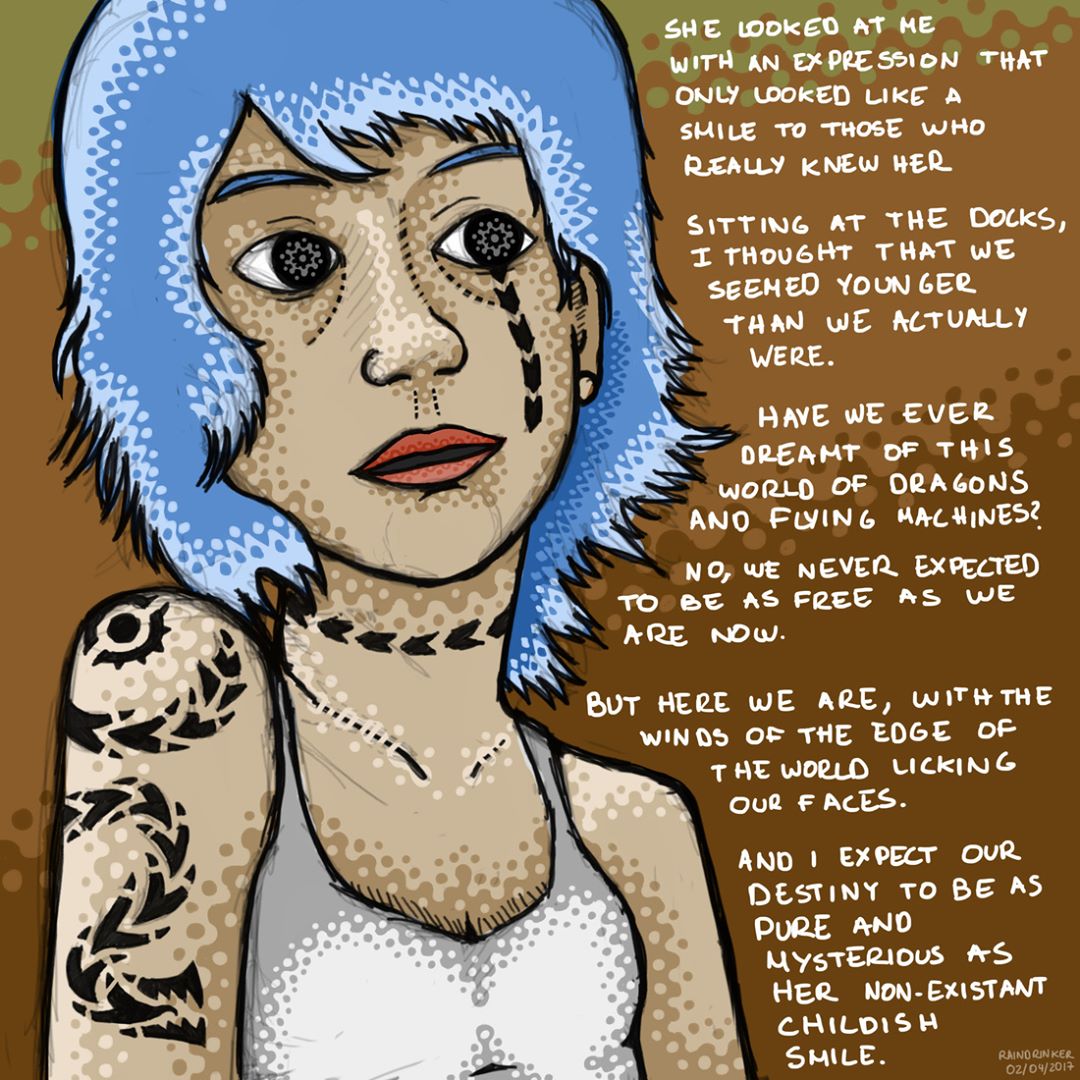 SHE LOOKED AT ME
WITH AN EXPRESSION THAT
ONLY LOOKED LIKE A
SMILE TO THOSE WHO
REALLY KNEW HER
SITTING AT THE DOCKS,
I THOUGHT THAT WE
SEEMED YOUNGER
THAN WE ACTUALLY
WERE.
HAVE WE EVER
DREAMT OF THIS
WORLD OF DRAGONS
AND FLYING MACHINES?
NO, WE NEVER EXPECTED
TO BE AS FREE AS WE
ARE NOW.
BUT HERE WE ARE, WITH THE
WINDS OF THE EDGE OF
THE WORLD LICKING
OUR FACES.
AND I EXPECT OUR
DESTINY TO BE AS
PURE AND
MYSTERIOUS AS
HER NON-EXISTANT
CHILDISH
SMILE.
RAINDRINKER
02/04/2017